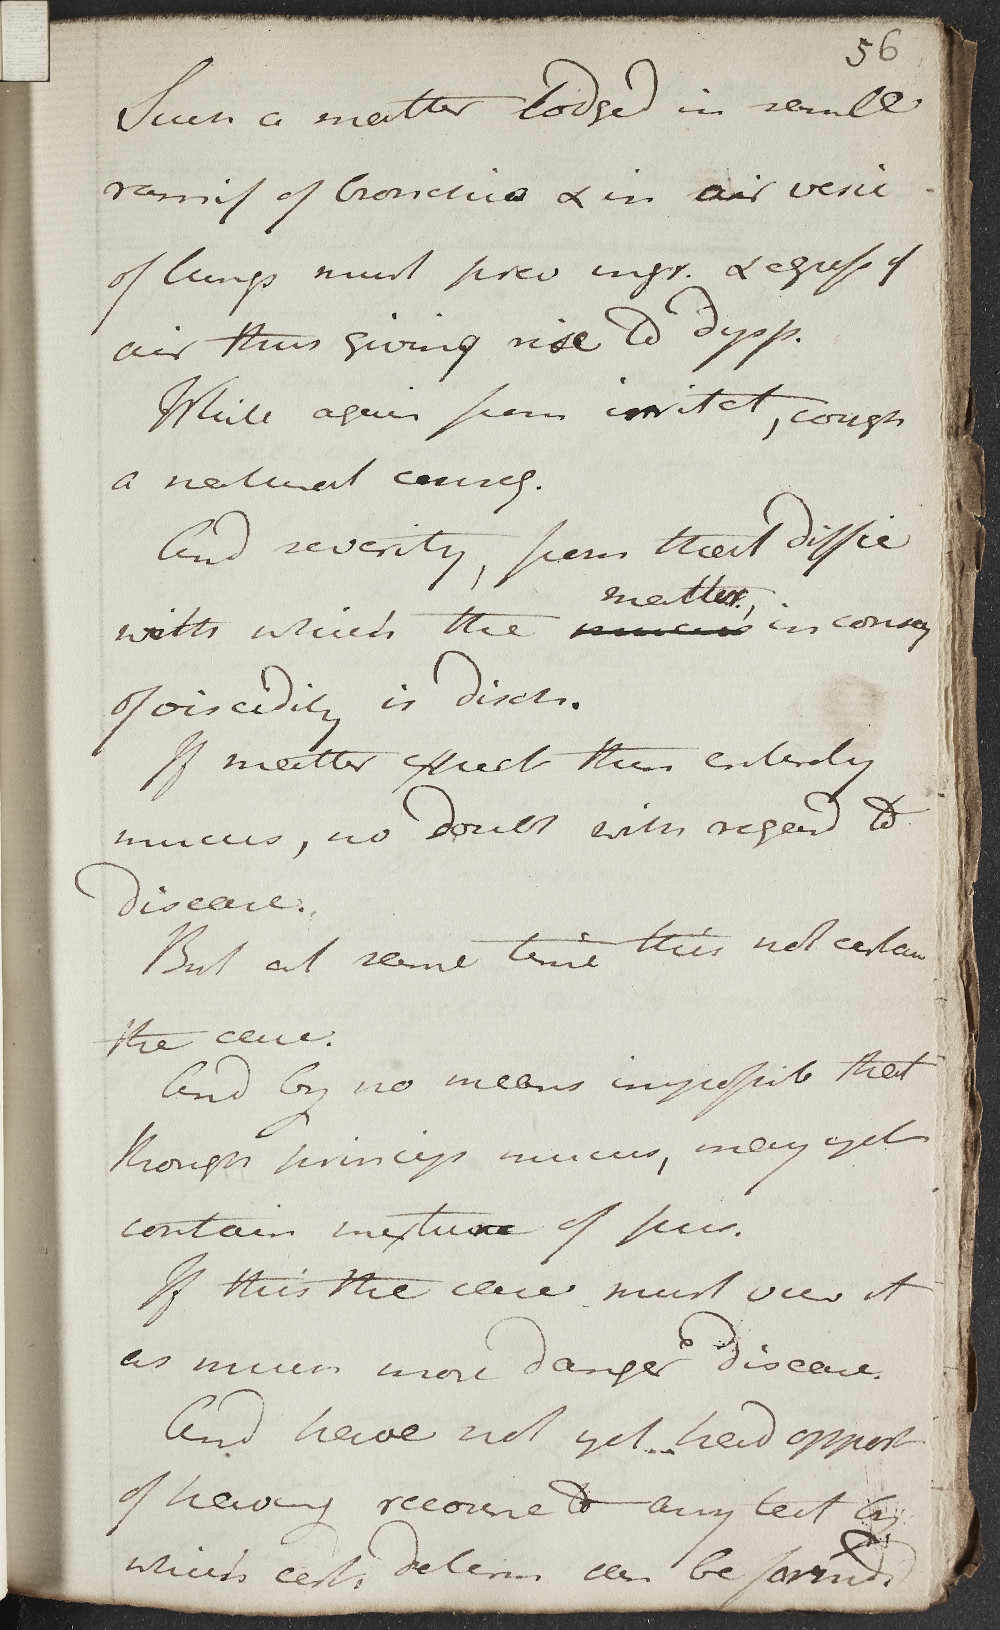 56
Such a matter lodged in small
ramif of bronchia & in air vesic
of lungs must prev ingr. & egress of
air thus giving rise to dysp.
While again from irritat, cough
a natural conseq.
And severity, from that diffic
with which the mucus matter, in conseq
of viscidity is disch.
If matter expect thus entirely
mucus, no doubt with regard to
disease.
But at same time this not certain
the case.
And by no means impossib that
though princip mucus, may yet
contain mixture of pus.
If this the case must view it
as much more danger disease.
And have not yet had opport
of having recourse to any test by
which cert determ can be formed